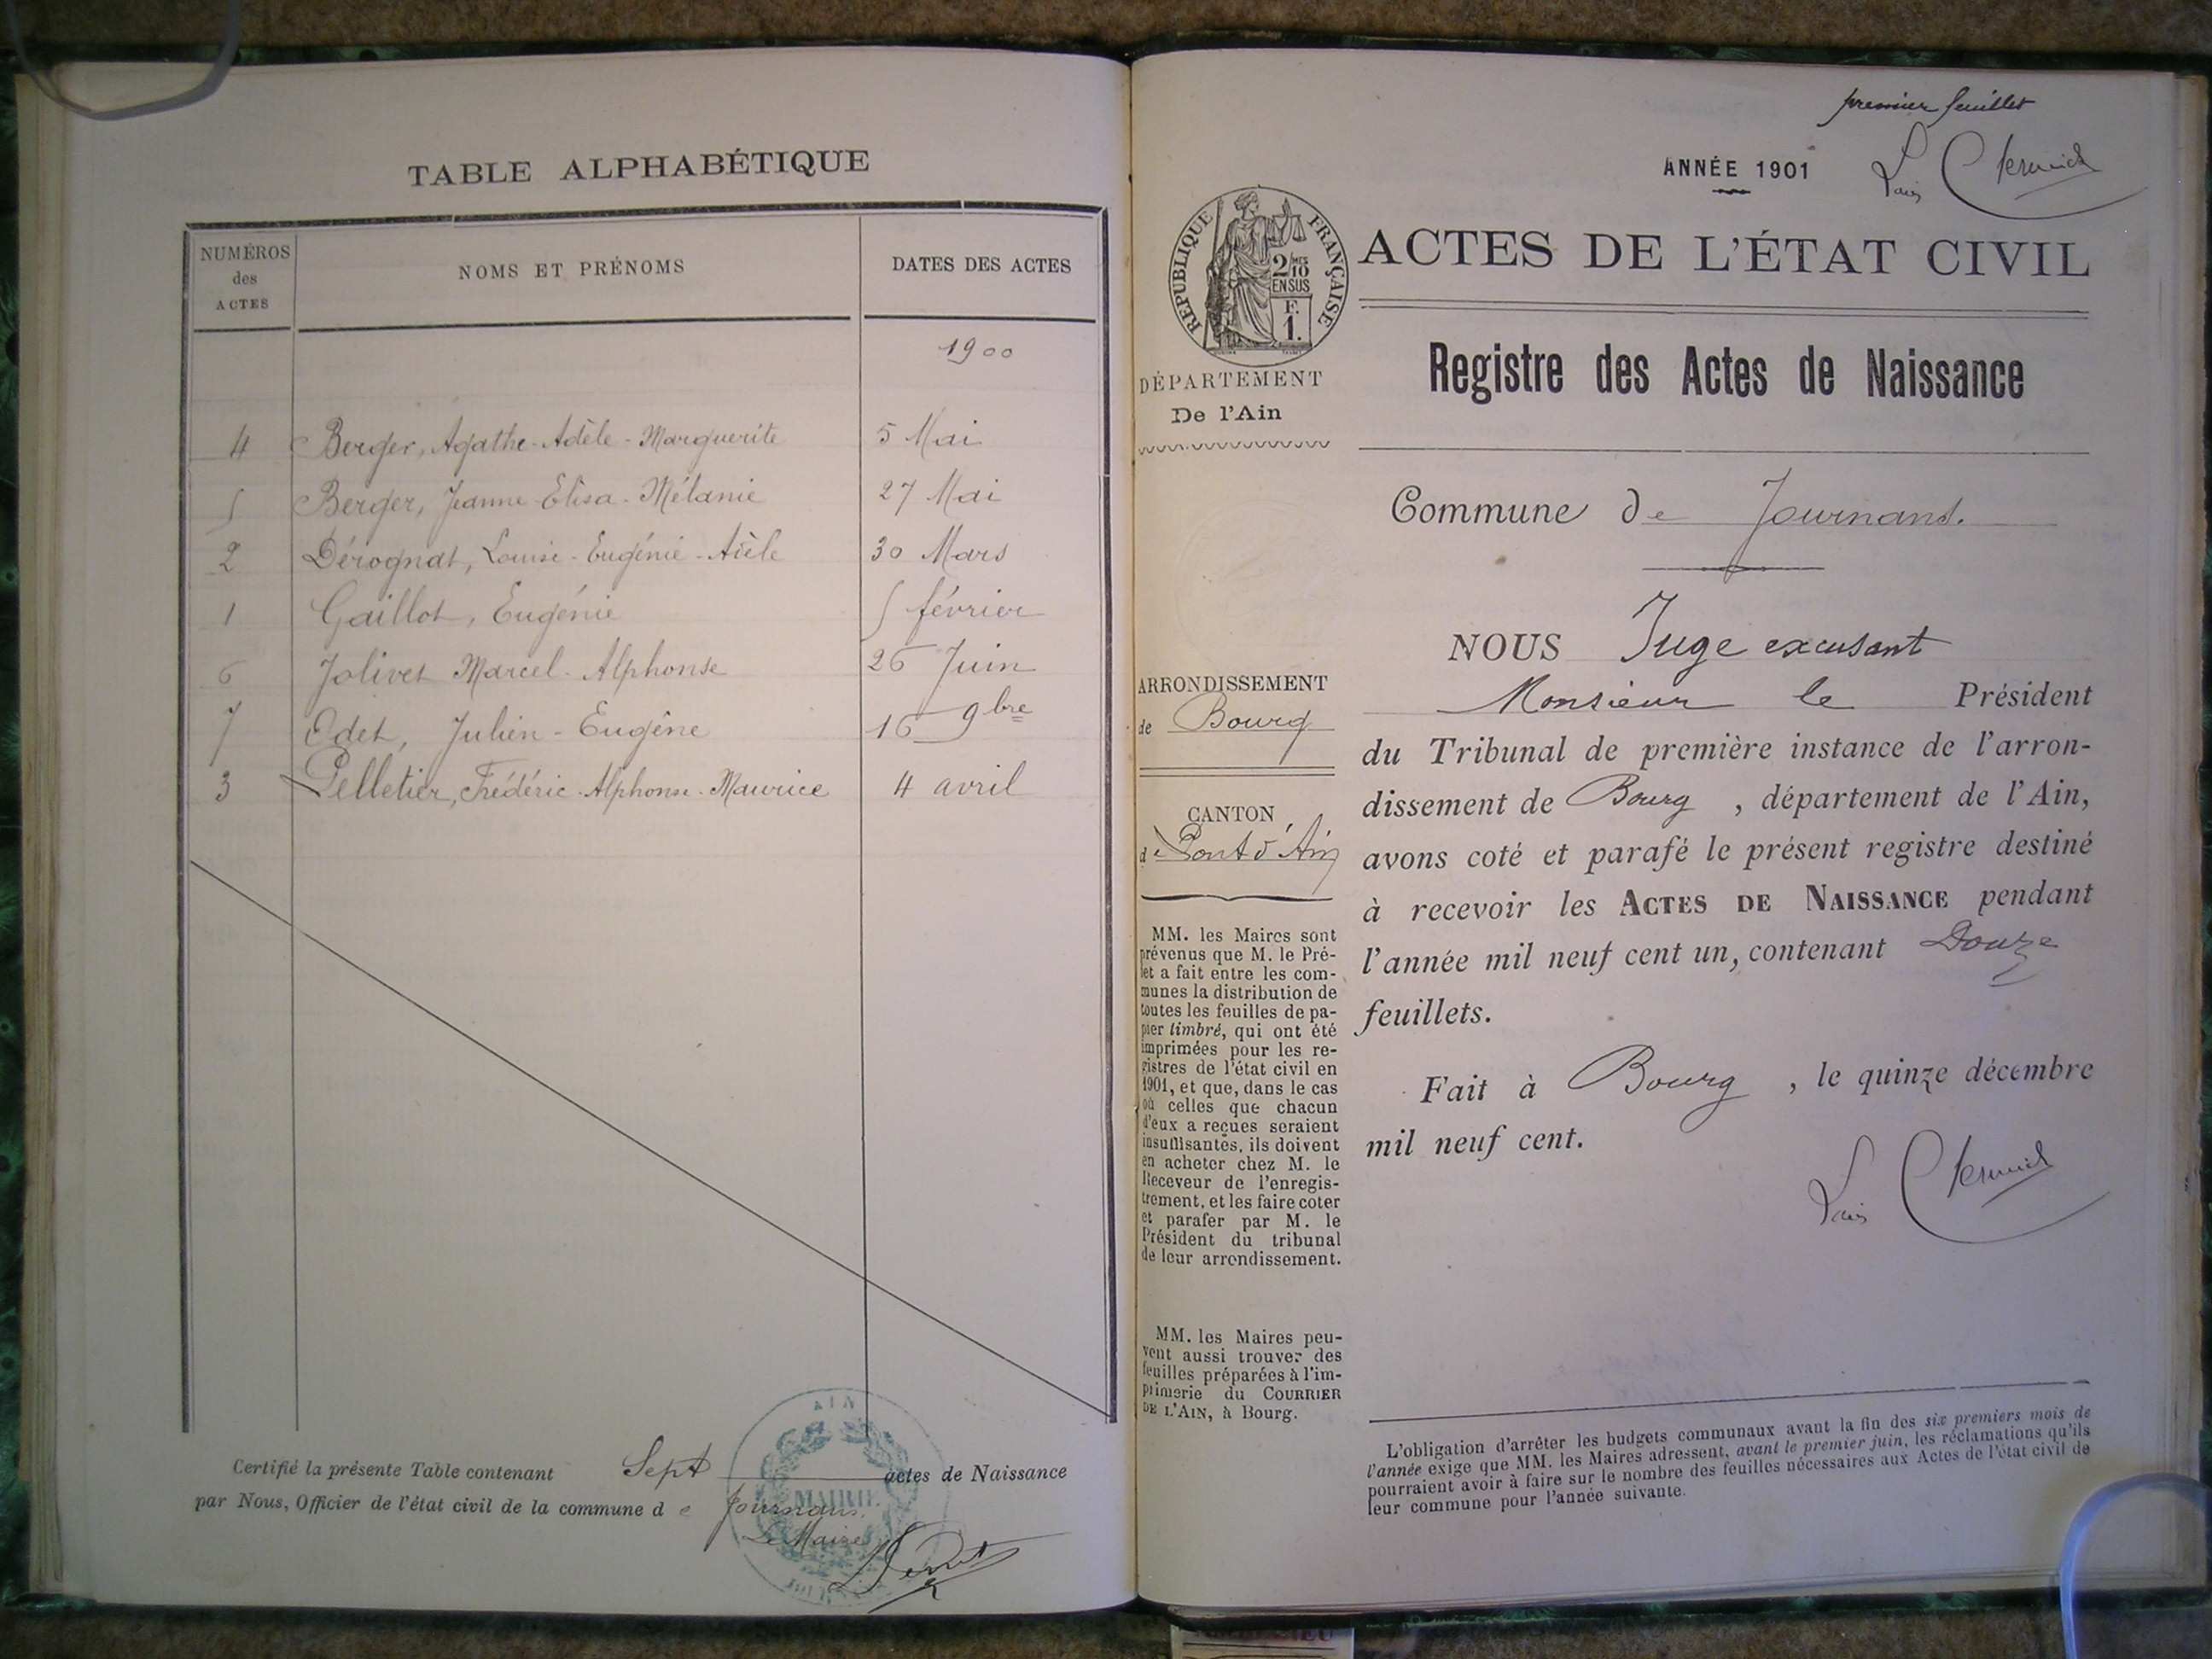 TABLE ALPHABÉTIQUE
NUMÉROS
des
ACTES
NOMS ET PRÉNOMS
DATES DES ACTES
1900
4 Berger, Agathe-Adèle-Marguerite 5 Mai
5 Berger, Jeanne-Élisa-Mélanie 27 Mai
2 Dérognat, Louise-Eugénie-Adèle 30 Mars
1 Gaillot, Eugénie 5 février
6 Jolivet Marcel-Alphonse 26 Juin
7 Odet, Julien-Eugène 16 9bre
3 Pelletier, Frédéric-Alphonse-Maurice 4 avril
Certifié la présente Table contenant Sept actes de Naissance
par Nous, Officier de l'état civil de la commune de Journans.
Le Maire
AIN
MAIRIE
premier feuillet
ANNÉE 1901
RÉPUBLIQUE FRANÇAISE
2/10MES
EN SUS
F.
1.
ACTES DE L'ÉTAT CIVIL
Registre des Actes de Naissance
DÉPARTEMENT
De l'Ain
Commune de Journans.
ARRONDISSEMENT
de Bourg
CANTON
de Pont d'Ain
MM. les Maires sont
prévenus que M. le Pré-
fet a fait entre les com-
munes la distribution de
toutes les feuilles de pa-
pier timbré, qui ont été
imprimées pour les re-
gistres de l'état civil en
1901, et que, dans le cas
où celles que chacun
d'eux a reçues seraient
insuffisantes, ils doivent
en acheter chez M. le
Receveur de l'enregis-
trement, et les faire coter
et parafer par M. le
Président du tribunal
de leur arrondissement.
MM. les Maires peu-
vent aussi trouver des
feuilles préparées à l'im-
primerie du COURRIER
DE L'AIN, à Bourg.
NOUS Juge excusant
Monsieur le Président
du Tribunal de première instance de l'arron-
dissement de Bourg, département de l'Ain,
avons coté et parafé le présent registre destiné
à recevoir les ACTES DE NAISSANCE pendant
l'année mil neuf cent un, contenant Douze
feuillets.
Fait à Bourg, le quinze décembre
mil neuf cent.
L'obligation d'arrêter les budgets communaux avant la fin des six premiers mois de
l'année exige que MM. les Maires adressent, avant le premier juin, les réclamations qu'ils
pourraient avoir à faire sur le nombre des feuilles nécessaires aux Actes de l'état civil de
leur commune pour l'année suivante.